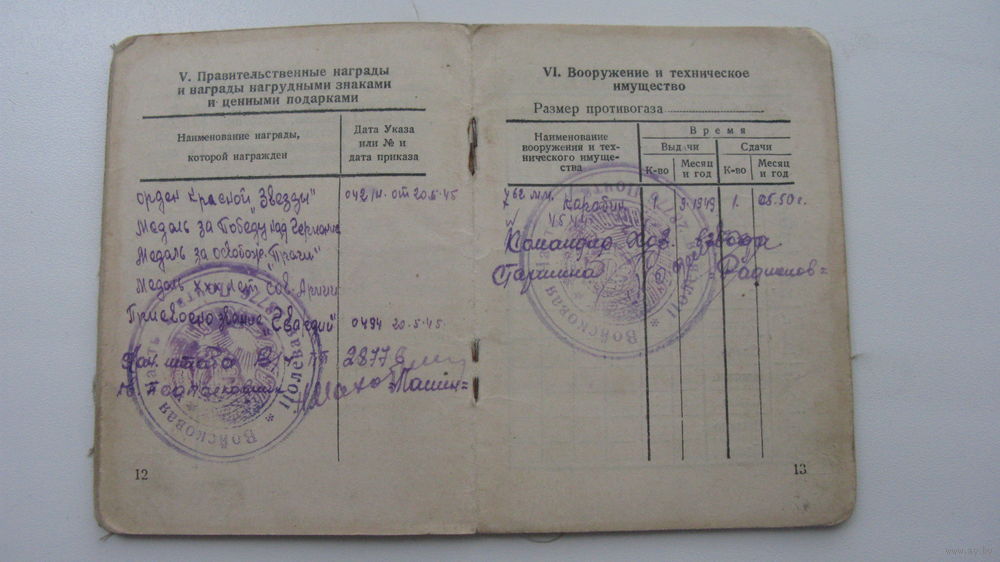 V. Правительственные награды
и награды нагрудными знаками
и ценными подарками
Наименование награды,
которой награжден
Дата Указа
или № и
дата приказа
орден Красной „Звезды" 042/н. от 20.5.45
Медаль за Победу над Германие
Медаль за освобож. „Праги"
Медаль ххх лет Сов. Армии
Присвоено звание „Гвардии" 0494 20.5.45.
Нач. штаба В/ч ПП 28776
12
VI. Вооружение и техническое
имущество
Размер противогаза
Наименование
вооружения и тех-
нического имуще-
ства
Время
Выдачи
Сдачи
К-во
Месяц
и год
К-во
Месяц
и год
7,62 мм. Карабин 1. 9.1949 1. 05.50 г.
Командир Хоз. взвода
Старшина Радионов=
13
Войсковая часть * Полевая почта 28776 *
Войсковая часть * Полевая почта 28776 *
www.ay.by